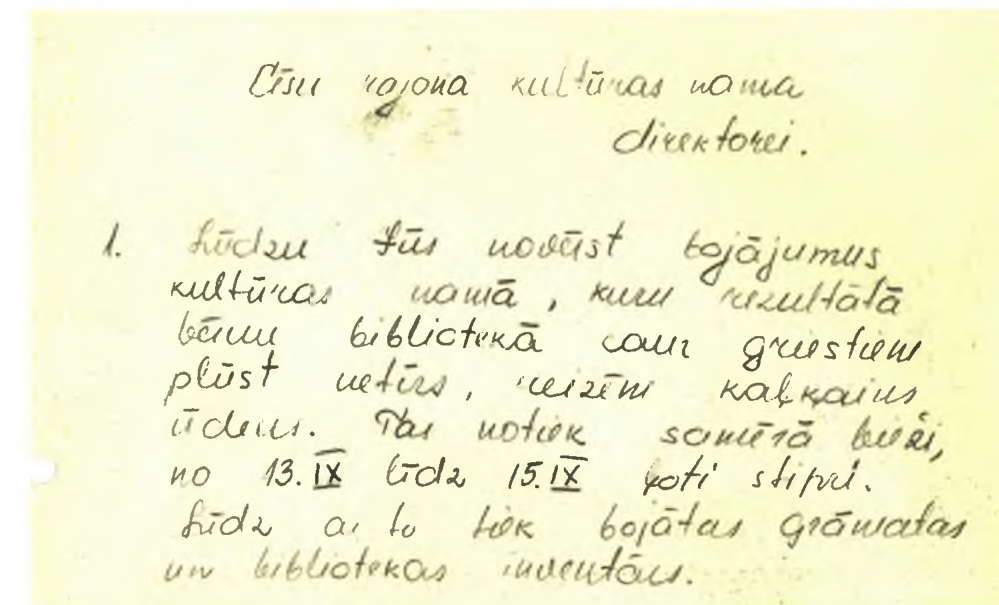 Cēsu rajona kultūras nama
direktorei.
1. Lūdzu Jūs novērst bojājumus
kultūras namā, kuru rezultātā
bērnu bibliotekā caur griestiem
plūst netīrs, reizēm kaļķains
ūdens. Tas notiek samērā bieži,
no 13.IX līdz 15.IX ļoti stipri.
Līdz ar to tiek bojātas grāmatas
un bibliotekas inventārs.